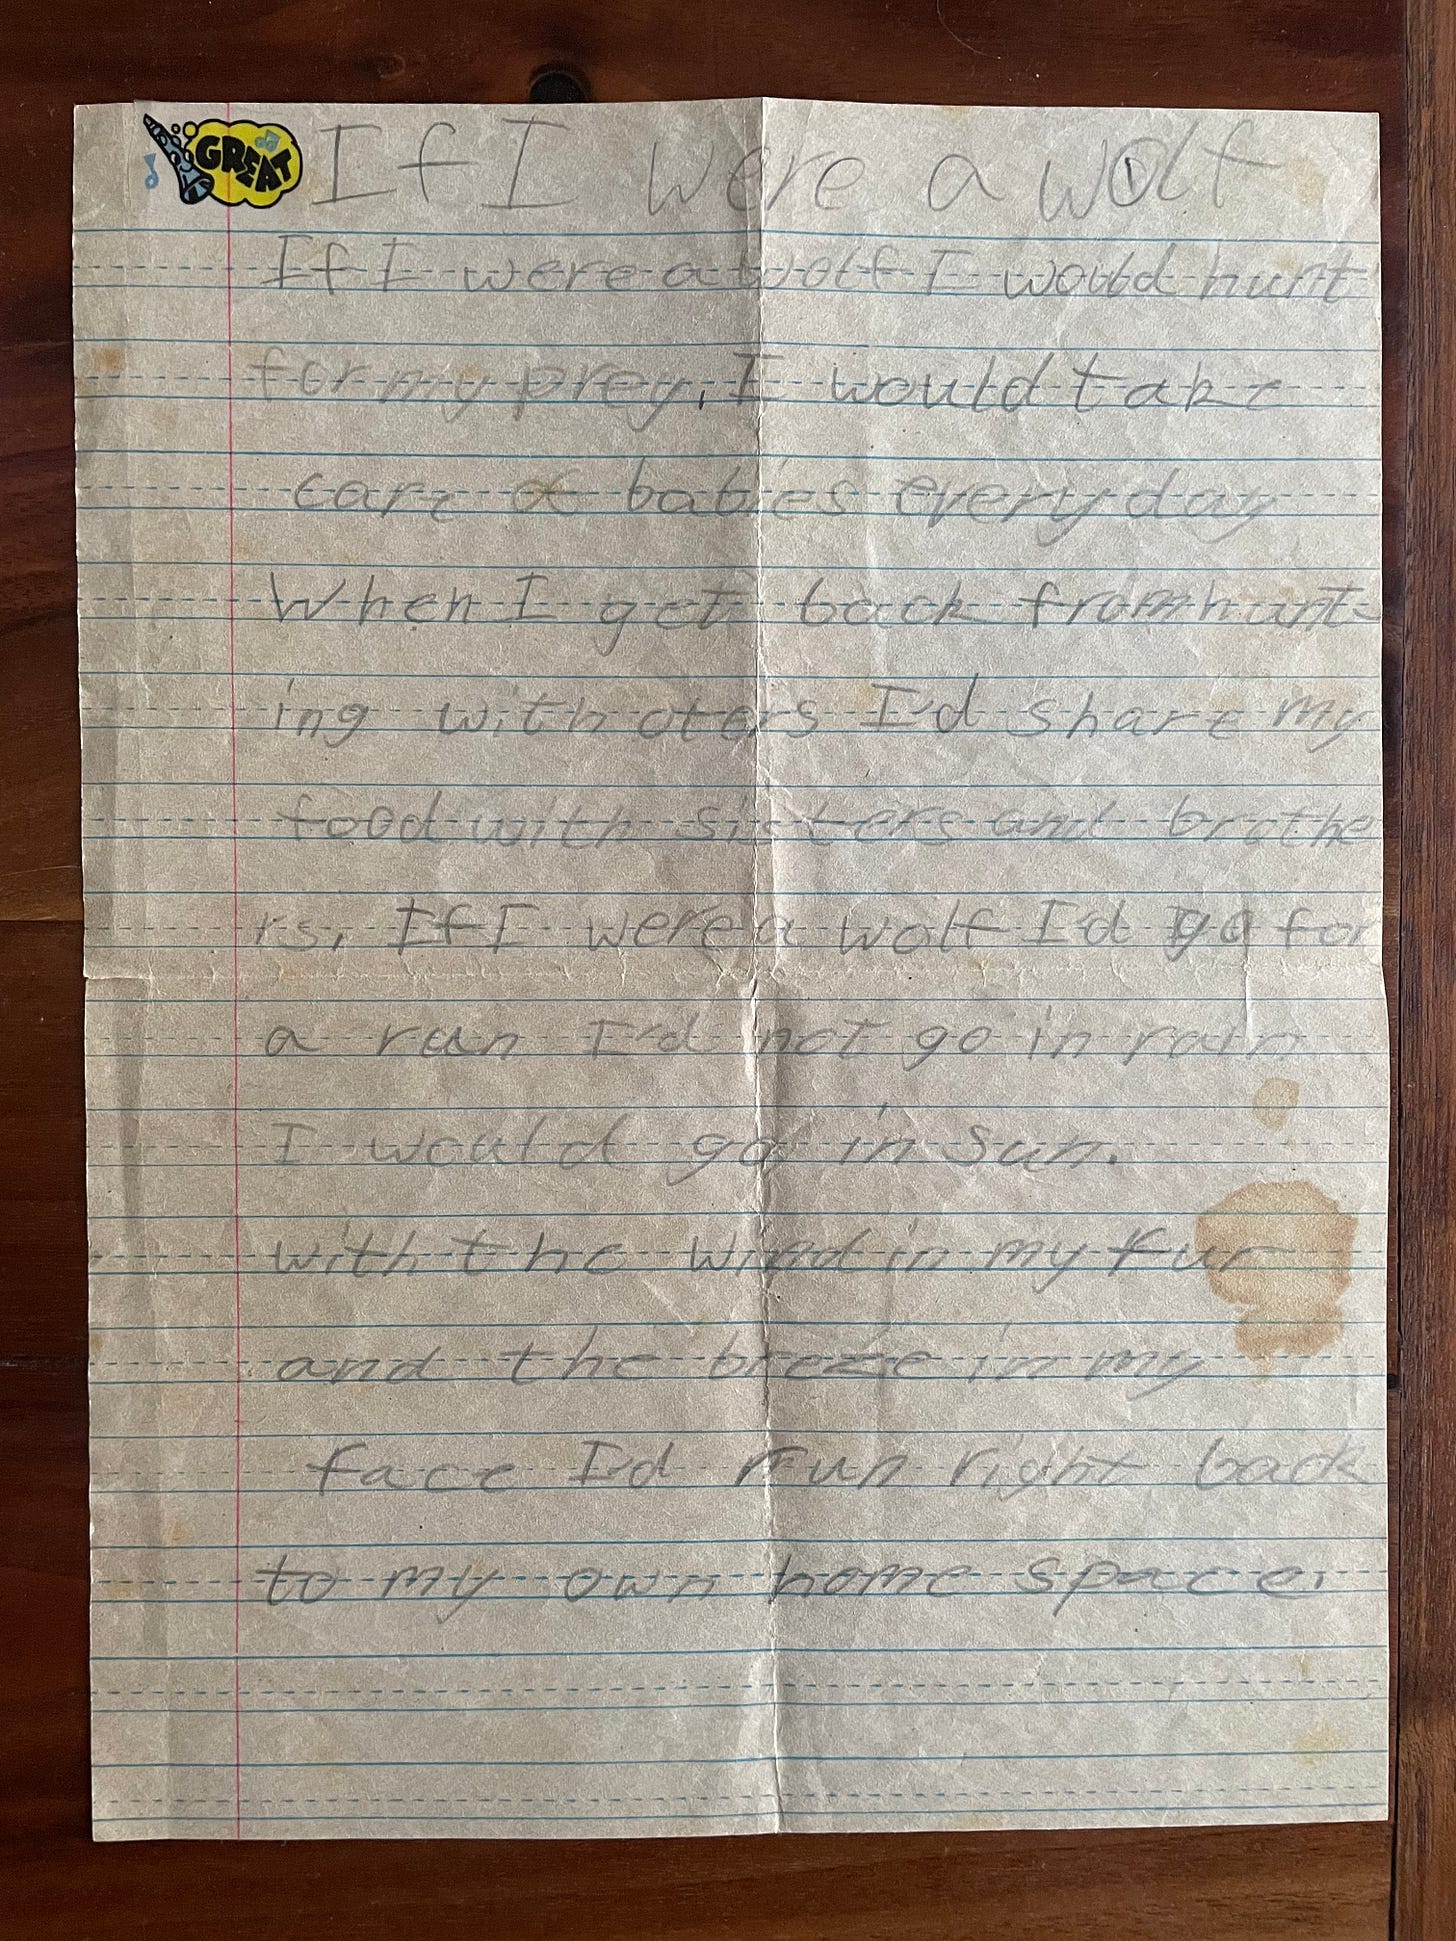 GREAT
If I were a wolf
If I were a wolf I would hunt
for my prey, I would take
care of babies every day
When I get back from hunt-
ing with oters I'd share my
food with sisters and brothe
rs, If I were a wolf I'd go for
a run I'd not go in rain
I would go in sun.
with the wind in my fur
and the breze in my
face I'd run right back
to my own home space.